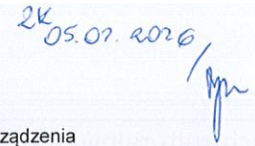 2K
05.01.2026
ządzenia